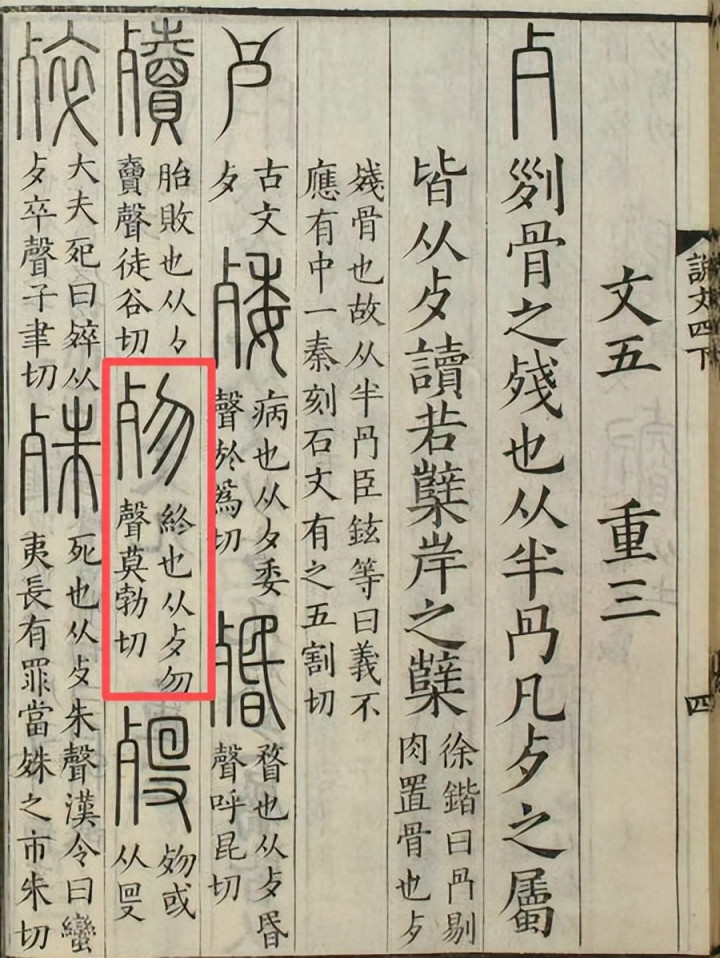 說文四下
四
文五 重三
歺
𠛱骨之殘也从半冎凡歺之屬
皆从歺讀若櫱岸之櫱
徐鍇曰冎剔
肉置骨也歺
殘骨也故从半冎臣鉉等曰義不
應有中一秦刻石文有之五割切
古文
歺
㱮
病也从歺委
聲於爲切
殙
瞀也从歺昬
聲呼昆切
殰
胎敗也从歺
𧶠聲徒谷切
歾
終也从歺勿
聲莫勃切
歿
歾或
从𠬛
㱚
大夫死曰㱚从
歺卒聲子聿切
殊
死也从歺朱聲漢令曰蠻
夷長有罪當殊之市朱切